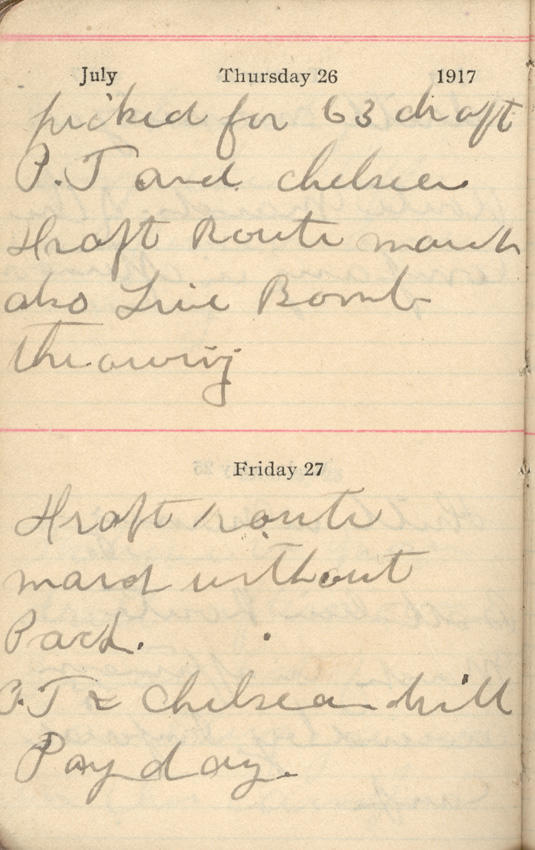 July Thursday 26 1917
picked for 63 draft
P.T and chelsea
Draft Route march
also Live Bomb
throwing
Friday 27
Draft route
march without
Pack.
P.T & chelsea drill
Pay day.